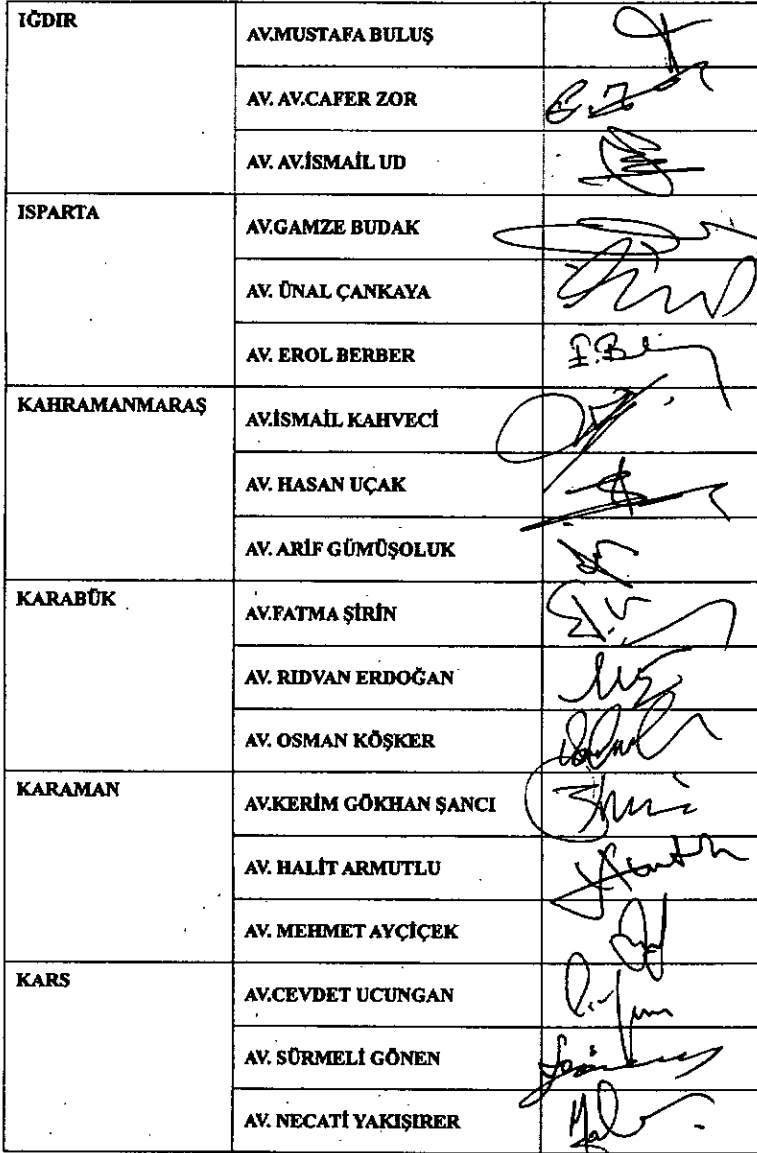 IĞDIR
AV.MUSTAFA BULUŞ
AV. AV.CAFER ZOR
AV. AV.İSMAİL UD
ISPARTA
AV.GAMZE BUDAK
AV. ÜNAL ÇANKAYA
AV. EROL BERBER
KAHRAMANMARAŞ
AV.İSMAİL KAHVECİ
AV. HASAN UÇAK
AV. ARİF GÜMÜŞOLUK
KARABÜK
AV.FATMA ŞİRİN
AV. RIDVAN ERDOĞAN
AV. OSMAN KÖŞKER
KARAMAN
AV.KERİM GÖKHAN ŞANCI
AV. HALİT ARMUTLU
AV. MEHMET AYÇİÇEK
KARS
AV.CEVDET UCUNGAN
AV. SÜRMELİ GÖNEN
AV. NECATİ YAKIŞIRER